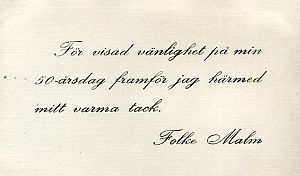 För visad vänlighet på min
50-årsdag framför jag härmed
mitt varma tack.
Folke Malm